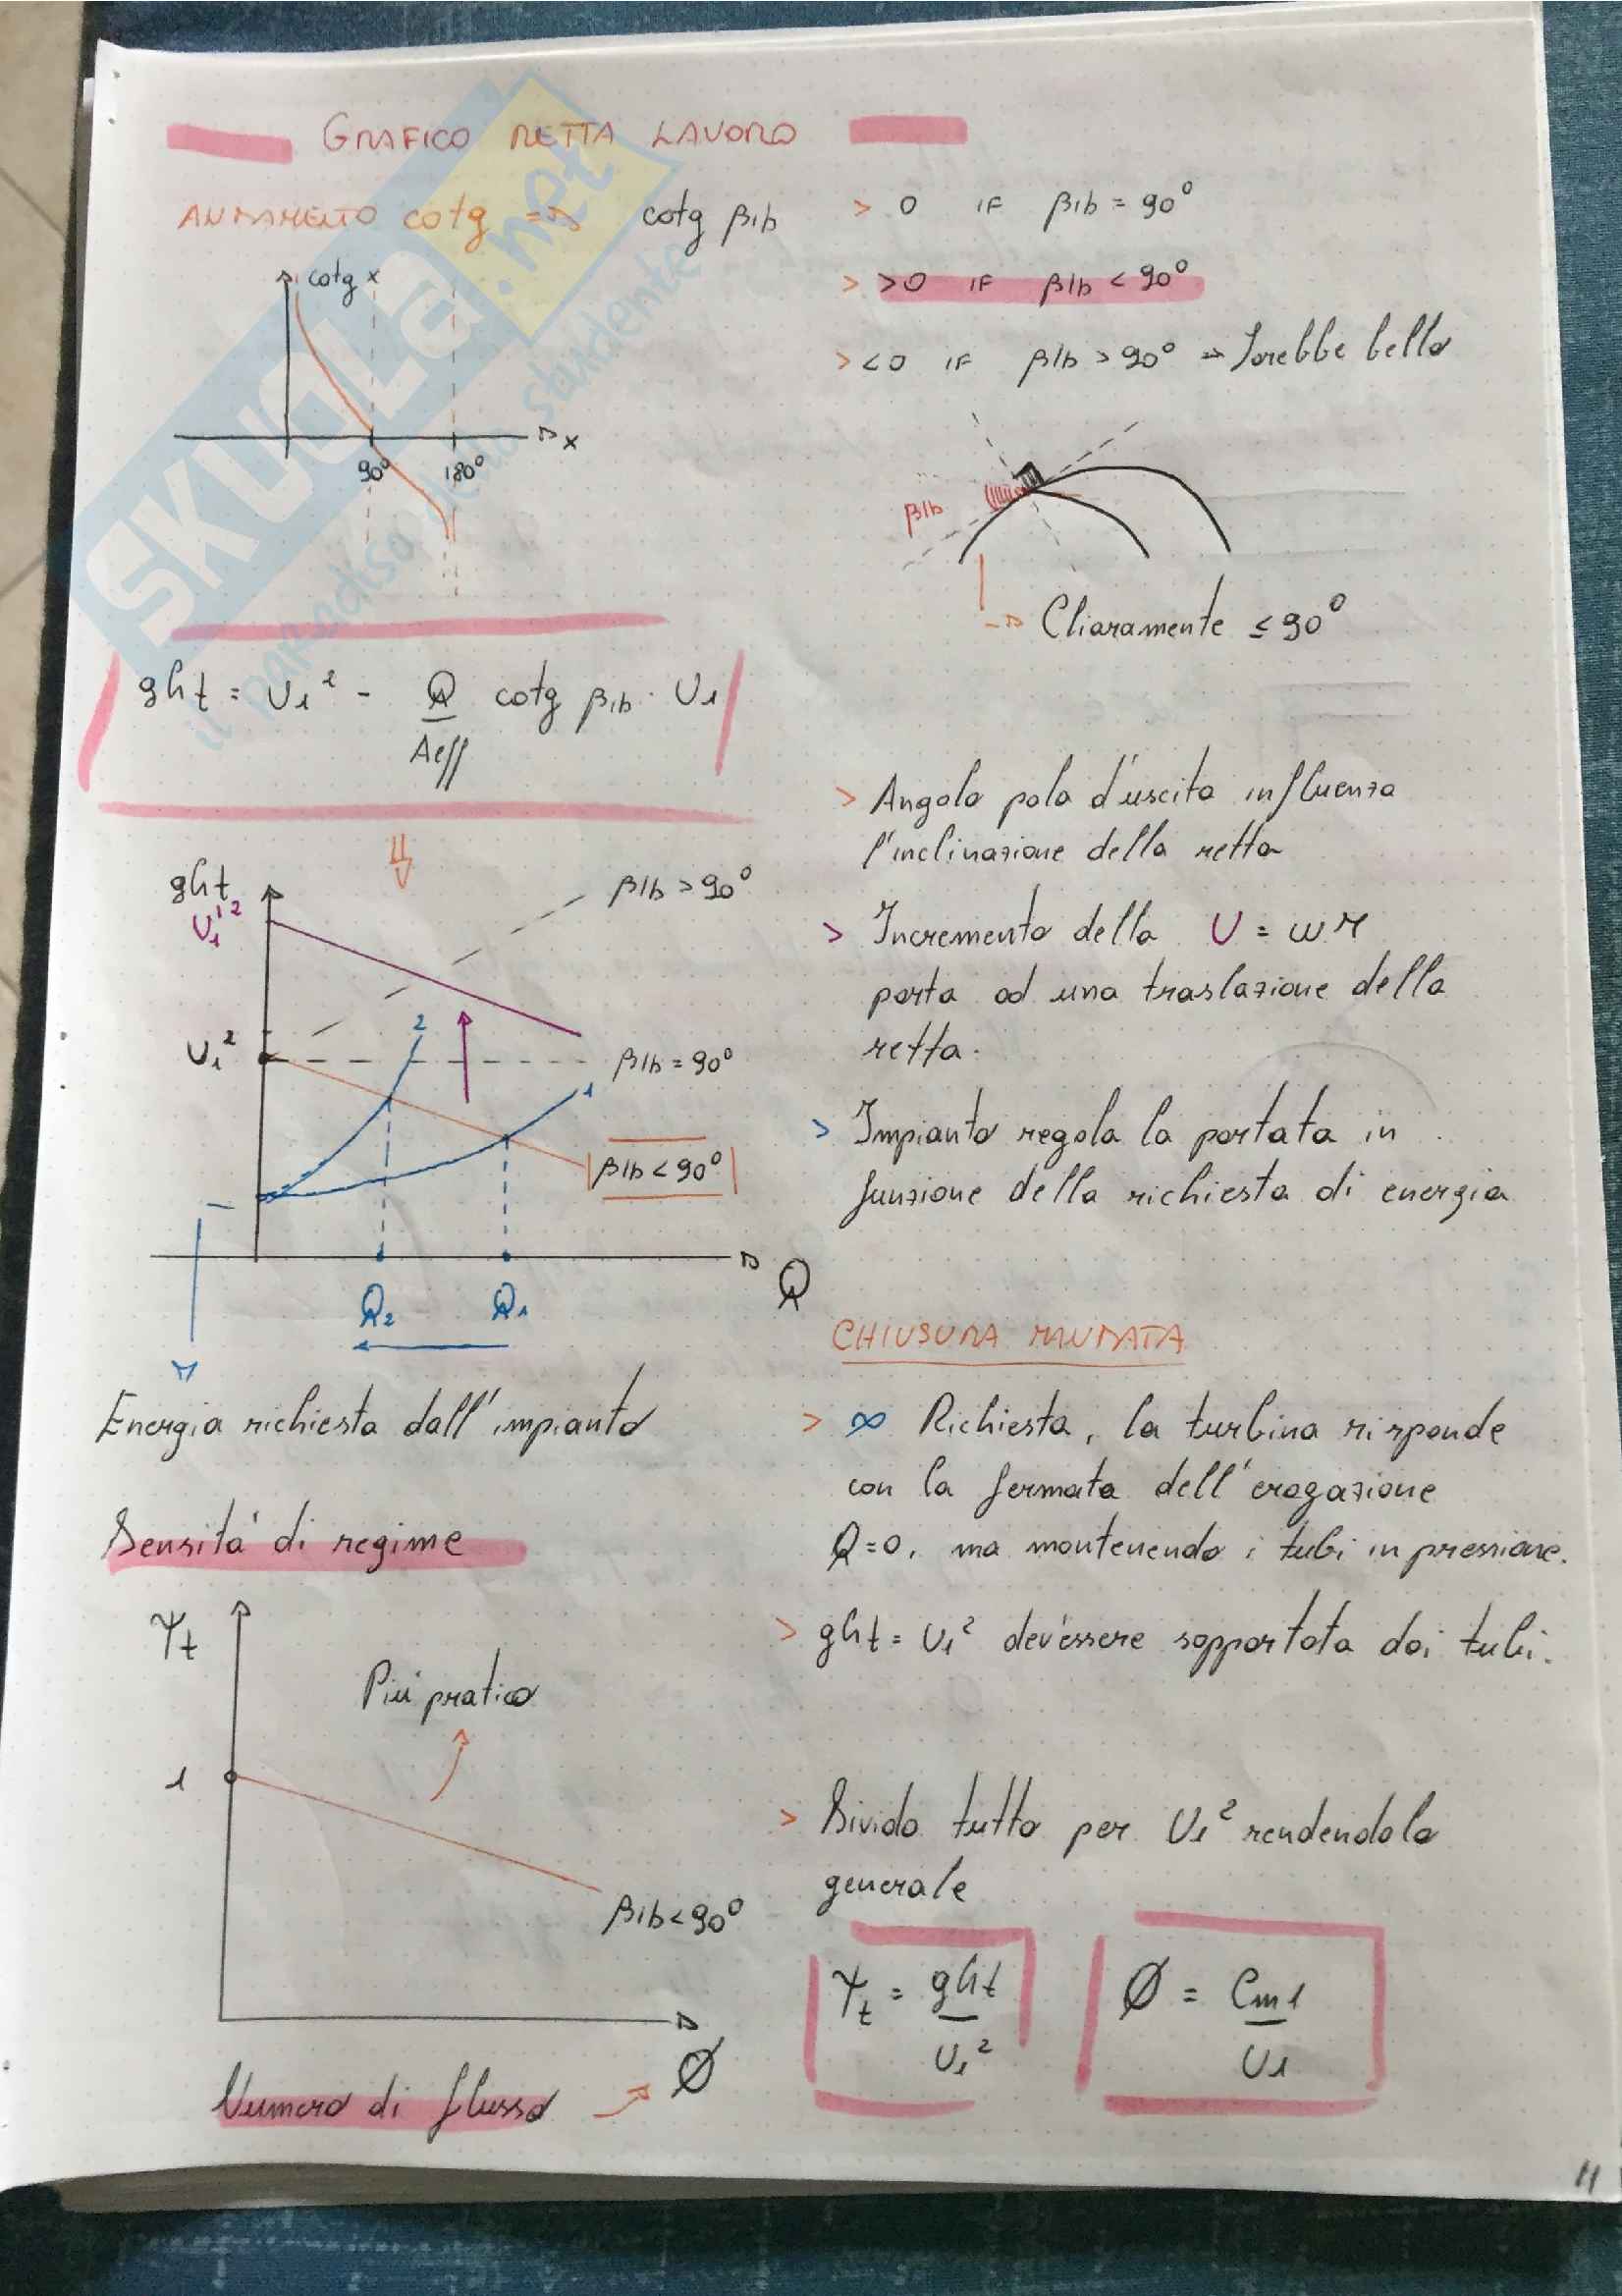 GRAFICO RETTA LAVORO
ANDAMENTO cotg => cotg β1b
> 0 IF β1b = 90°
> >0 IF β1b < 90°
> <0 IF β1b > 90° → Sarebbe bello
cotg x
90° 180° x
β1b
→ Chiaramente ≤ 90°
ght = U1² - Q/Aeff cotg β1b · U1
> Angolo pala d'uscita influenza
l'inclinazione della retta
> Incremento della U = ωr
porta ad una traslazione della
retta.
> Impianto regola la portata in
funzione della richiesta di energia
ght
U1'²
β1b > 90°
2
U1²
β1b = 90°
1
β1b < 90°
Q
Q2 Q1
Energia richiesta dall'impianto
CHIUSURA MANDATA
> ∞ Richiesta, la turbina risponde
con la fermata dell'erogazione
Q=0, ma mantenendo i tubi in pressione.
> ght = U1² dev'essere sopportata dai tubi.
Densità di regime
Ψt
Più pratico
1
β1b < 90°
Ø
Numero di flusso
> Divido tutto per U1² rendendola
generale
Ψt = ght/U1²
Ø = Cm1/U1
11
SKUOLA.net
il paradiso dello studente